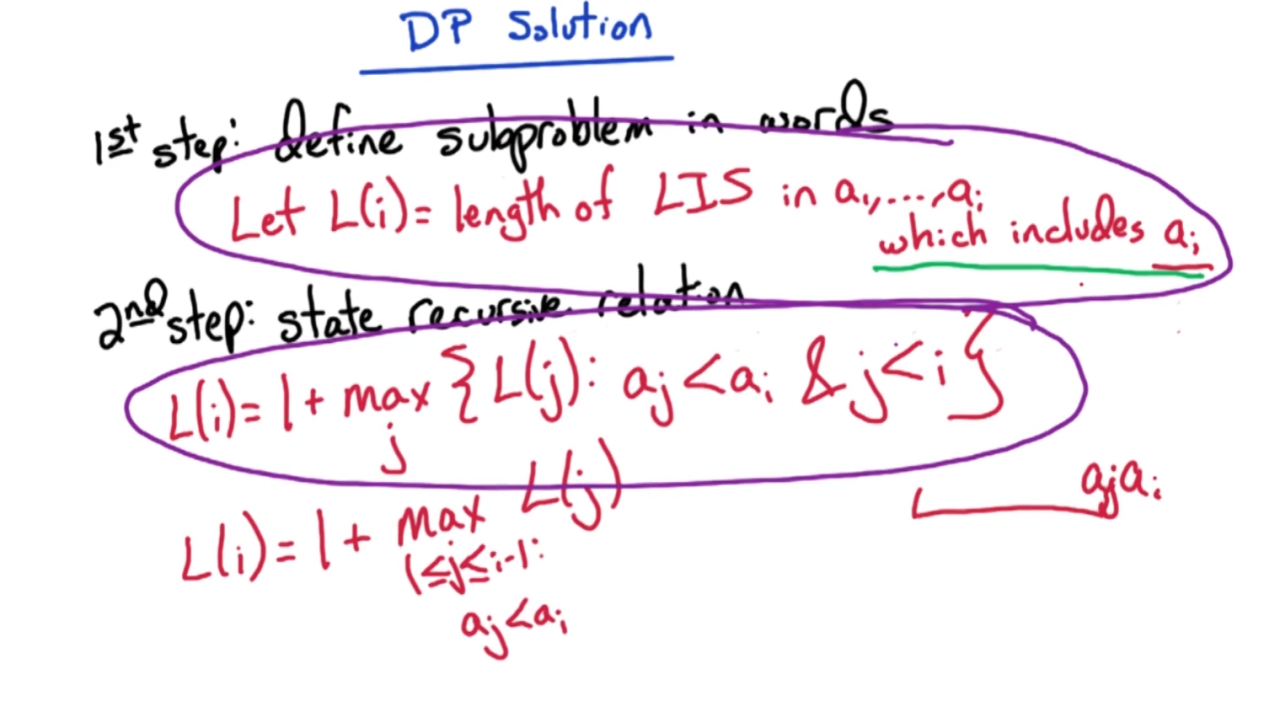 DP Solution
1st step: define subproblem in words
Let L(i) = length of LIS in a₁,...,aᵢ
which includes aᵢ
2nd step: state recursive relation
L(i) = 1 + max {L(j): aⱼ < aᵢ & j < i}
j
aⱼaᵢ
L(i) = 1 + max L(j)
1≤j≤i-1:
aⱼ < aᵢ